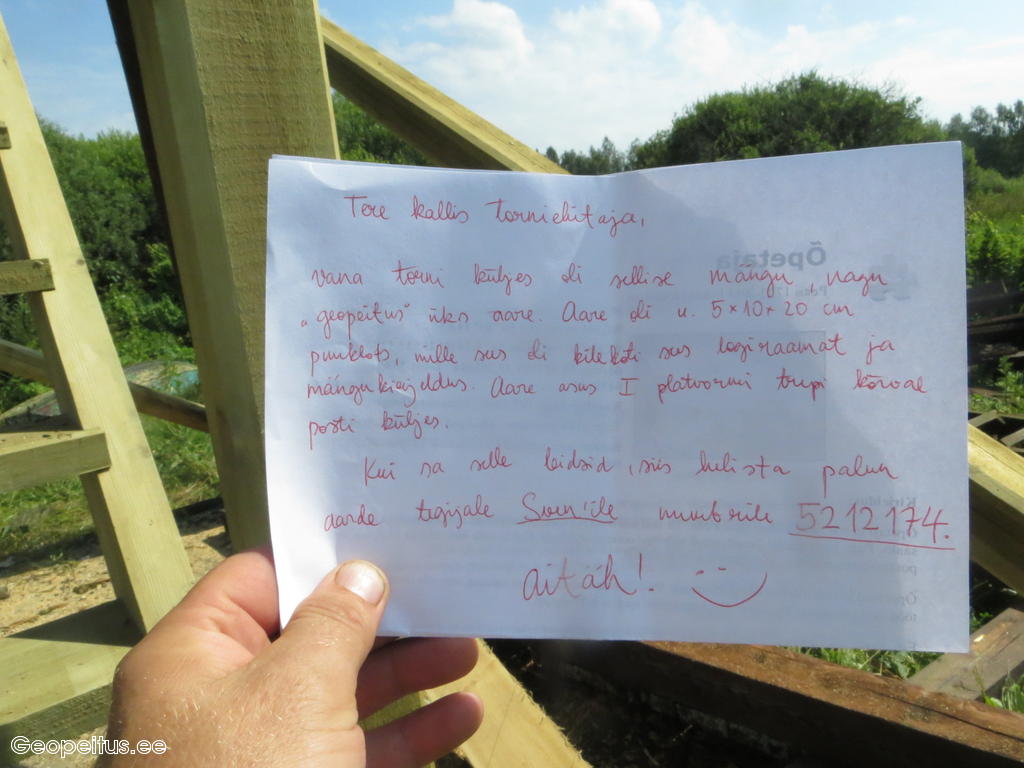 Tere kallis torniehitaja,
vana torni küljes oli sellise mängu, nagu
„geopeitus" üks aare. Aare oli u. 5×10×20 cm
puuklots, mille sees oli kilekoti sees logiraamat ja
mängukirjeldus. Aare asus I platvormi trepi kõrval
posti küljes.
Kui sa selle leidsid, siis helista palun
aarde tegijale numbrile 5212174.
Aitäh!
Õpetaja
Geopeitus.ee